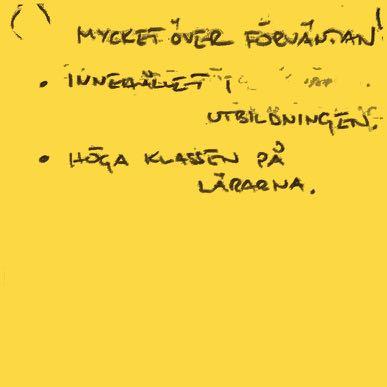 MYCKET ÖVER FÖRVÄNTAN!
• INNEHÅLLET I
UTBILDNINGEN.
• HÖGA KLASSEN PÅ
LÄRARNA.